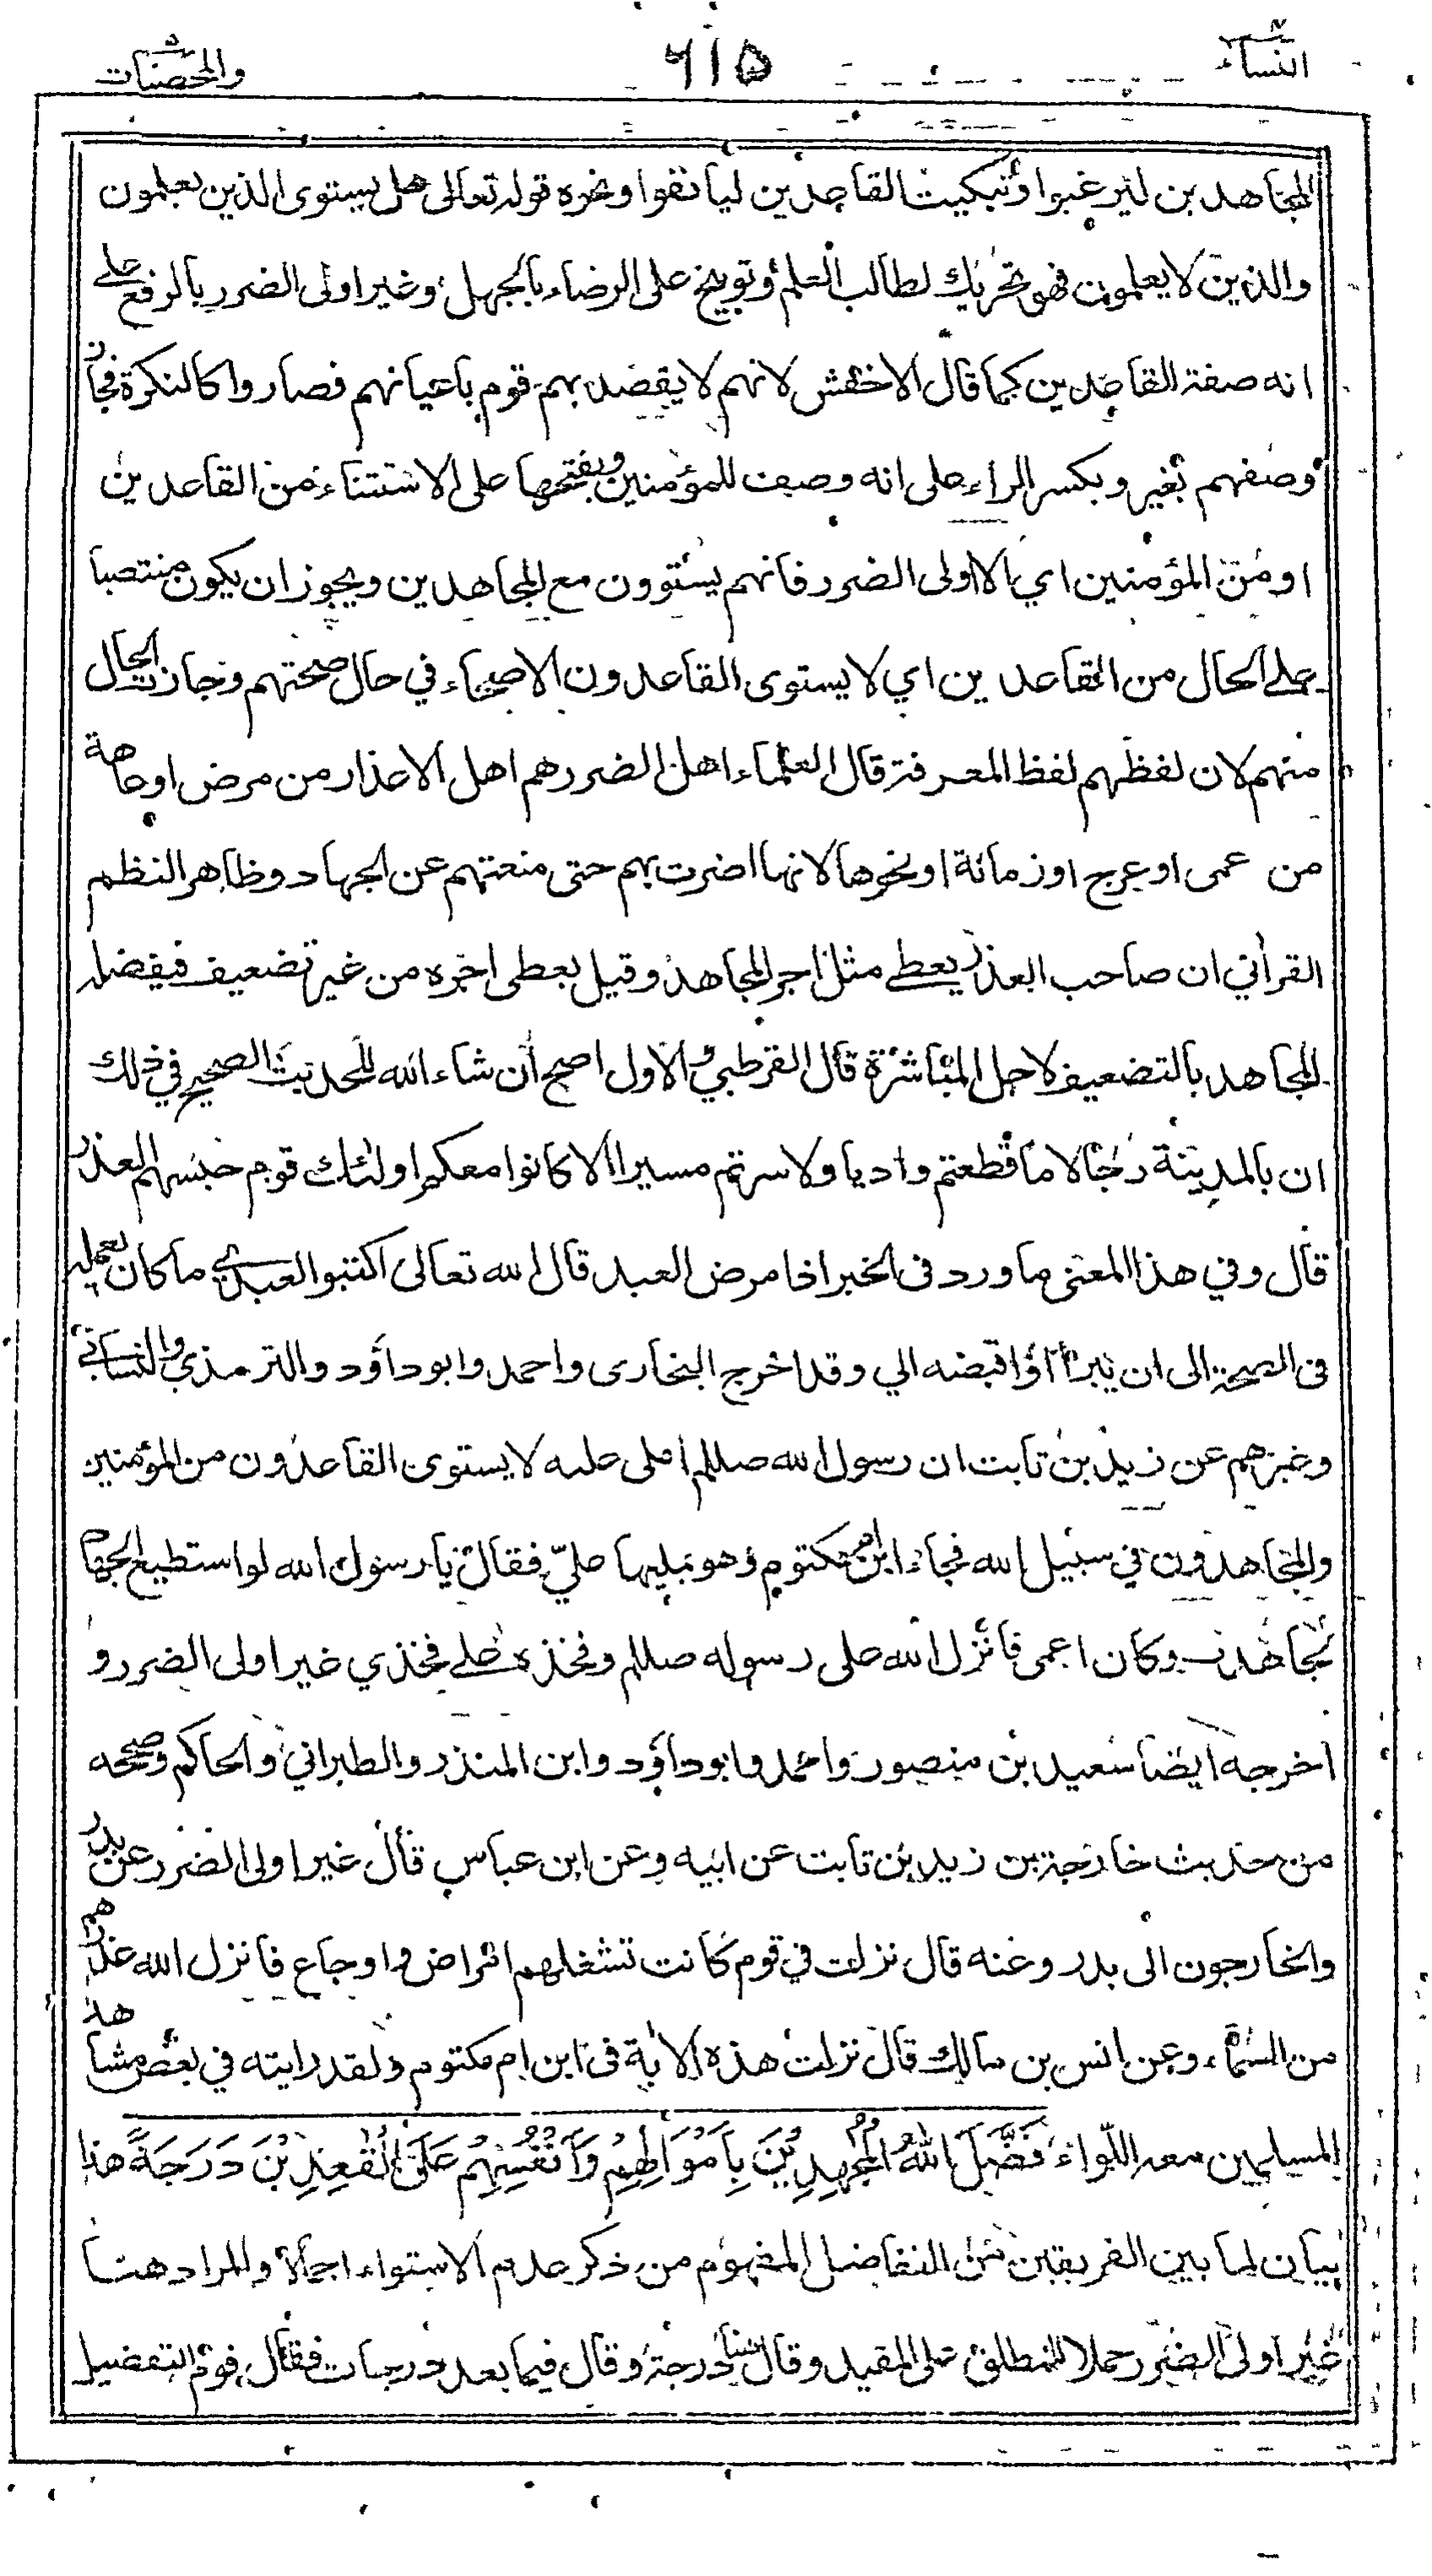 النساء ٦١٥ والمحصنات
المجاهدين ليرغبوا وتبكيت القاعدين ليأنفوا ونحوه قوله تعالى هل يستوى الذين يعلمون
والذين لا يعلمون فهو تحريك لطالب العلم وتوبيخ على الرضاء بالجهل وغير اولى الضرر بالرفع على
انه صفة القاعدين كما قال الاخفش لانهم لا يقصد بهم قوم باعيانهم فصاروا كالنكرة فجاز
وصفهم بغير وبكسر الراء على انه وصف للمؤمنين وبفتحها على الاستثناء من القاعدين
او من المؤمنين اي الا اولى الضرر فانهم يستوون مع المجاهدين ويجوز ان يكون منتصبا
على الحال من القاعدين اي لا يستوى القاعدون الاصحاء في حال صحتهم وجازت الحال
منهم لان لفظهم لفظ المعرفة قال العلماء اهل الضرر هم اهل الاعذار من مرض او عاهة
من عمى او عرج او زمانة او نحوها لانها اضرت بهم حتى منعتهم عن الجهاد وظاهر النظم
القرآني ان صاحب العذر يعطى مثل اجر المجاهد وقيل يعطى اجره من غير تضعيف فيفضله
المجاهد بالتضعيف لاجل المباشرة قال القرطبي والاول اصح ان شاء الله للحديث الصحيح في ذلك
ان بالمدينة رجالا ما قطعتم واديا ولا سرتم مسيرا الا كانوا معكم اولئك قوم حبسهم العذر
قال وفي هذا المعنى ما ورد في الخبر اذا مرض العبد قال الله تعالى اكتبوا لعبدي ما كان يعمله
في الصحة الى ان يبرأ او اقبضه الي وقد اخرج البخارى واحمد وابو داؤد والترمذي والنسائي
وغيرهم عن زيد بن ثابت ان رسول الله صللم املى عليه لا يستوى القاعدون من المؤمنين
والمجاهدون في سبيل الله فجاء ابن ام مكتوم وهو يمليها عليّ فقال يا رسول الله لو استطيع الجهاد
لجاهدت وكان اعمى فانزل الله على رسوله صللم وفخذه على فخذي غير اولى الضرر و
اخرجه ايضا سعيد بن منصور واحمد وابو داؤد وابن المنذر والطبراني والحاكم وصححه
من حديث خارجة بن زيد بن ثابت عن ابيه وعن ابن عباس قال غير اولى الضرر عن بدر
والخارجون الى بدر وعنه قال نزلت في قوم كانت تشغلهم امراض واوجاع فانزل الله عذرهم
من السماء وعن انس بن مالك قال نزلت هذه الاية فى ابن ام مكتوم ولقد رايته في بعض مشاهد
المسلمين معه اللواء فَضَّلَ اللهُ الْمُجٰهِدِيْنَ بِاَمْوَالِهِمْ وَاَنْفُسِهِمْ عَلَى الْقٰعِدِيْنَ دَرَجَةً هذا
بيان لما بين الفريقين من التفاضل المفهوم من ذكر عدم الاستواء اجمالا والمراد هنا
غير اولى الضرر حملا للمطلق على المقيد وقال هنا درجة وقال فيما بعد درجات فقال قوم التفضيل